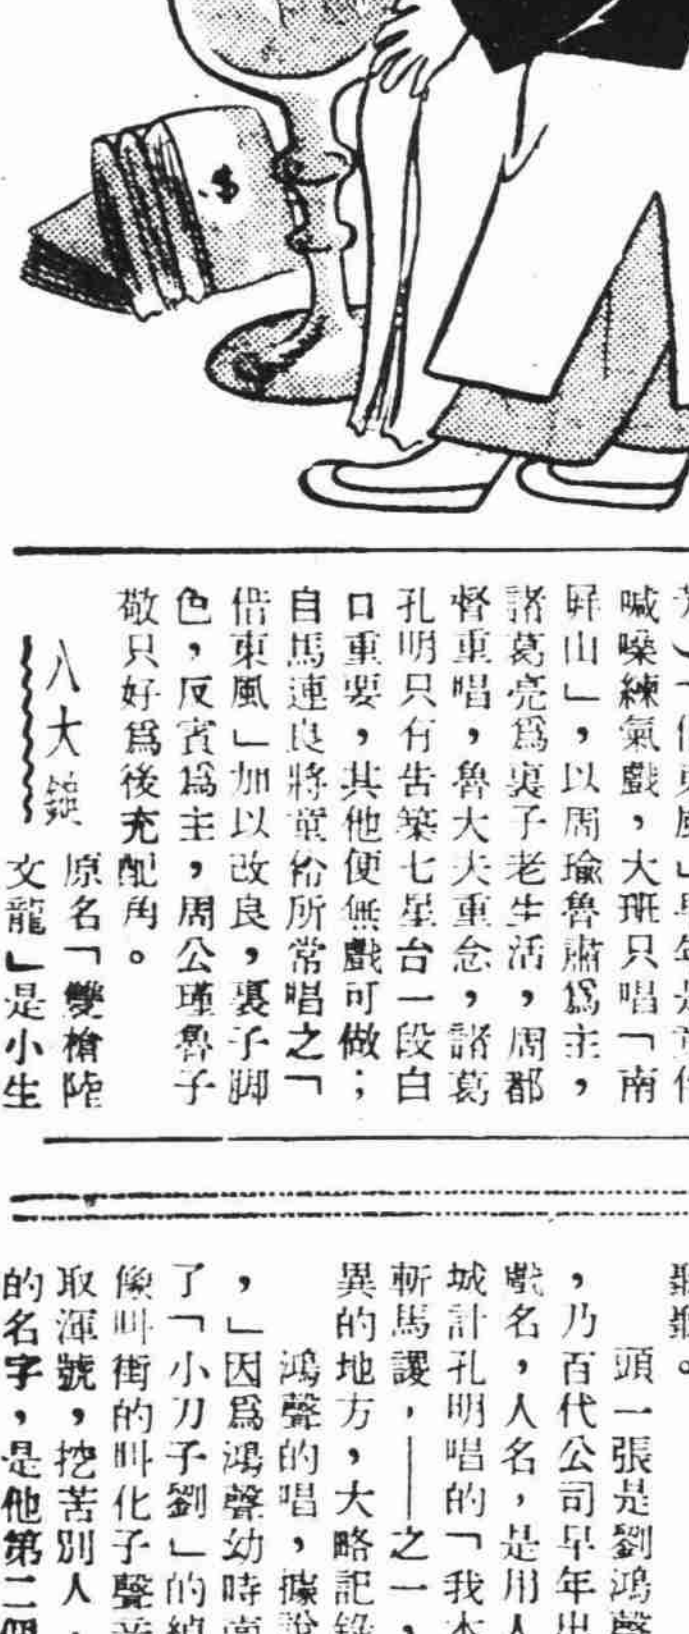 喊嗓練氣戲，大班只唱「南
屏山」，以周瑜魯肅爲主，
諸葛亮爲裏子老生活，周都
督重唱，魯大夫重念，諸葛
孔明只有告築七星台一段白
口重要，其他便無戲可做；
自馬連良將童伶所常唱之「
借東風」加以改良，裏子脚
色，反賓爲主，周公瑾魯子
敬只好爲後充配角。
八大鎚
原名「雙槍陸
文龍」是小生
頭一張是劉鴻聲
，乃百代公司早年出
戲名，人名，是用人
城計孔明唱的「我本
斬馬謖，——之一，
異的地方，大略記錄
鴻聲的唱，據說
，」因爲鴻聲幼時
了「小刀子劉」的綽
像叫街的叫化子聲音
取渾號，挖苦別人，
的名字，是他第二個